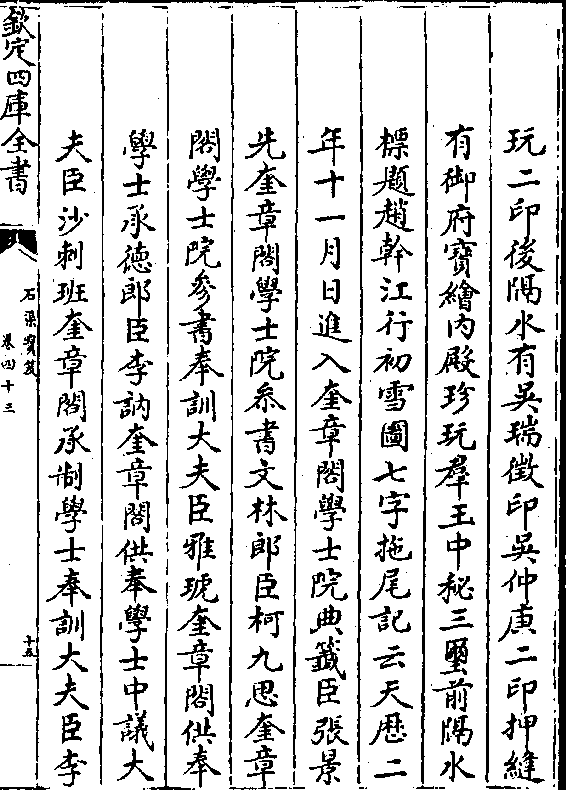 玩二印後隔水有吳瑞徴印吳仲庚二印押縫
有御府寳繪内殿珍玩羣玉中秘三璽前隔水
標題趙幹江行初雪圖七字拖尾記云天厯二
年十一月日進入奎章閣學士院典籖臣張景
先奎章閣學士院叅書文林郎臣柯九思奎章
閣學士院參書奉訓大夫臣雅琥奎章閣供奉
學士承徳郎臣李訥奎章閣供奉學士中議大
夫臣沙剌班奎章閣承制學士奉訓大夫臣李
欽定四庫全書
石渠寳笈
卷四十三
十五